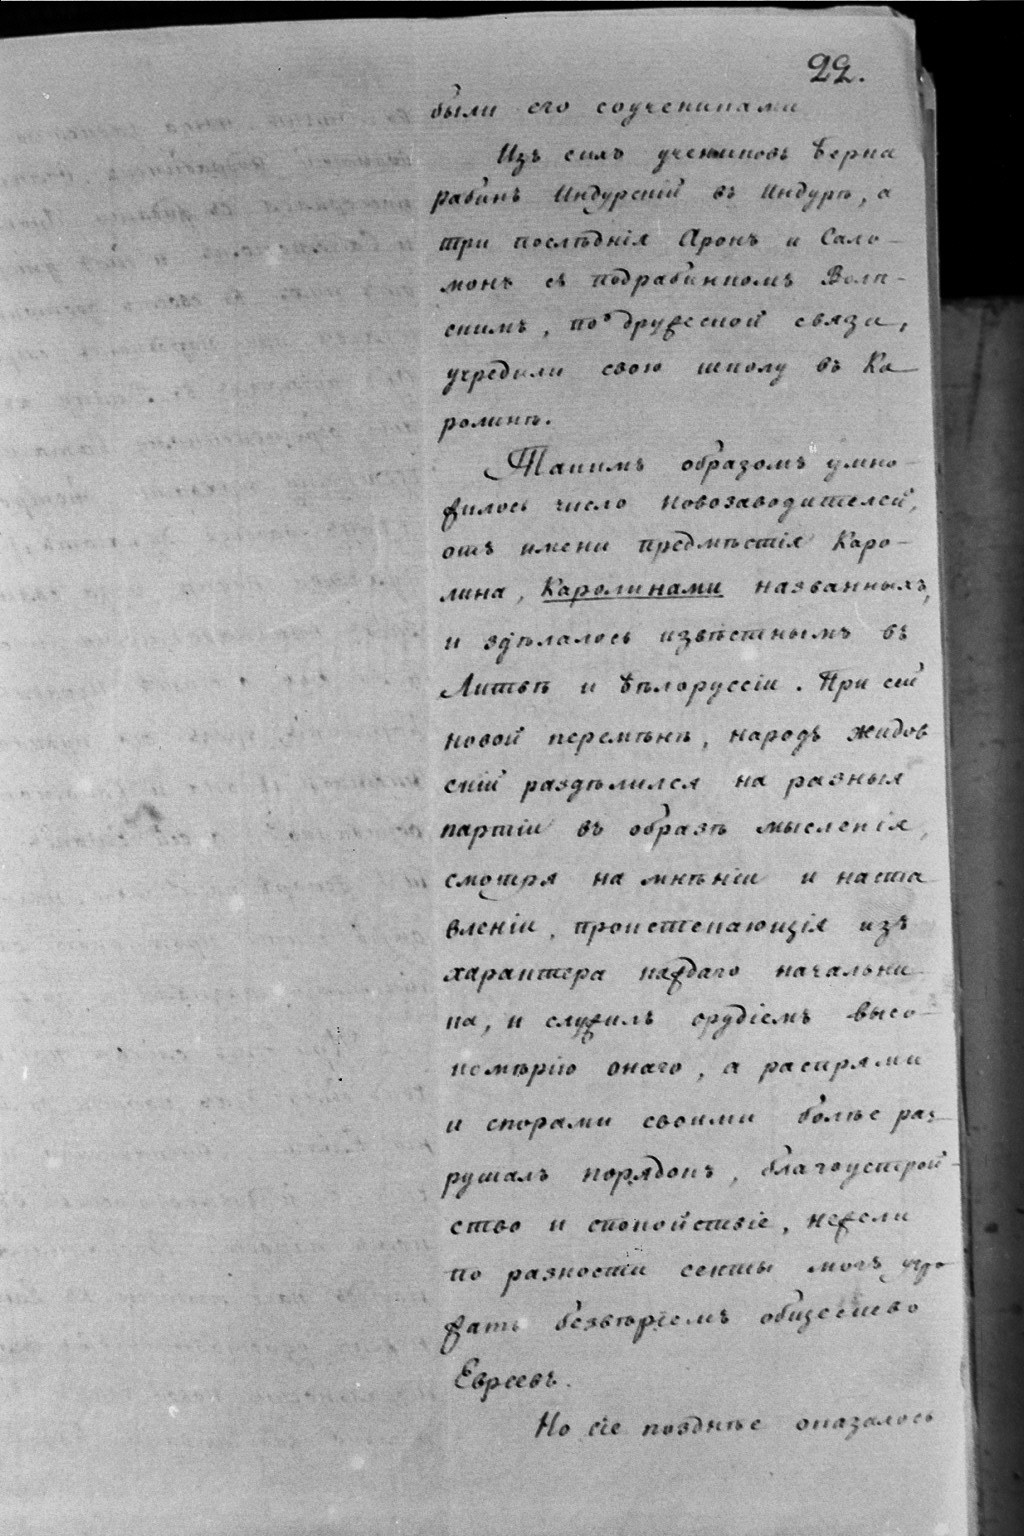 22.
были его соучениками
Изъ сихъ учениковъ Берка
рабинъ Индурскій въ Индурѣ, а
три послѣднія Аронъ и Сало-
монъ съ подрабинкомъ Волп-
скимъ, по дружеской связи,
учредили свою школу въ Ка
ролинѣ.
Такимъ образомъ умно-
жилось число новозаводителей,
отъ имени предмѣстія Каро-
лина, Каролинами названныхъ,
и здѣлалось извѣстнымъ въ
Литвѣ и Бѣлоруссіи. При сей
новой перемѣнѣ, народъ жидов
скій раздѣлился на разныя
партіи въ образѣ мысленія,
смотря на мнѣніи и наста
вленіи, проистекающія изъ
характера каждаго начальни
ка, и служилъ орудіемъ высо-
комѣрію онаго, а распрями
и спорами своими болѣе раз
рушалъ порядокъ, благоустрой-
ство и спокойствіе, нежели
по разности секты могъ угро
жать безвѣріемъ общество
Евреевъ.
Но сіе позднѣе оказалось